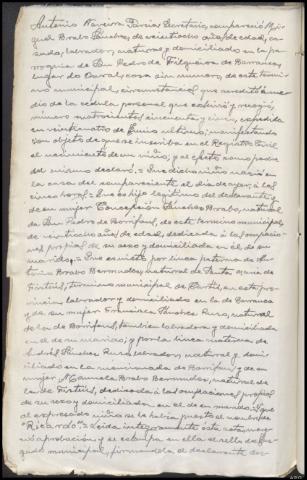 Antonio Naveira Pasín Secretario, compareció Mi-
guel Brabo Sánchez, de veintiocho años de edad, ca-
sado, labrador, natural y domiciliado en la pa-
rroquia de San Pedro de Filgueira de Barranca,
lugar do Carral, casa sin número, de este término
municipal, circunstancias que acreditó me-
dio de la cédula personal que exhibió y recogió,
número cuatrocientos cincuenta y cinco, expedida
en veinticuatro de Junio último; manifestando
con objeto de que se inscriba en el Registro Civil
el nacimiento de un niño; y al efecto como padre
del mismo declaró: Que dicho niño nació en
la casa del compareciente el día de ayer, a las
cinco Que es hijo legítimo del declarante y
de su mujer Concepción Sánchez Brabo, natural
de San Pedro de Borrifans, de este término municipal
de veintiocho años de edad, dedicada á las ocupacio-
nes propias de su sexo y domiciliada en el de su
marido. Que es nieto por línea paterna de
Brabo Bermúdez, natural de Santa María de
Fisteus, término municipal de Curtis, en esta pro-
vincia labrador y domiciliado en la de Barranca
y de su mujer Francisca Sánchez natural
de la de Borrifans, también labradora y domiciliada
en el de su marido; y por la línea materna de
Andrés Sánchez labrador, natural y domi-
ciliado en la mencionada de Borrifans y de su
mujer Manuela Brabo Bermúdez, natural de
la de Fisteus, dedicada á las ocupaciones propias
de su sexo y domiciliada en el de su marido. Y que
al expresado niño se le había puesto el nombre de
"Ricardo". Leída íntegramente esta acta
aprobación y se estampa en ella el sello del Juz-
gado municipal, firmándola el declarante